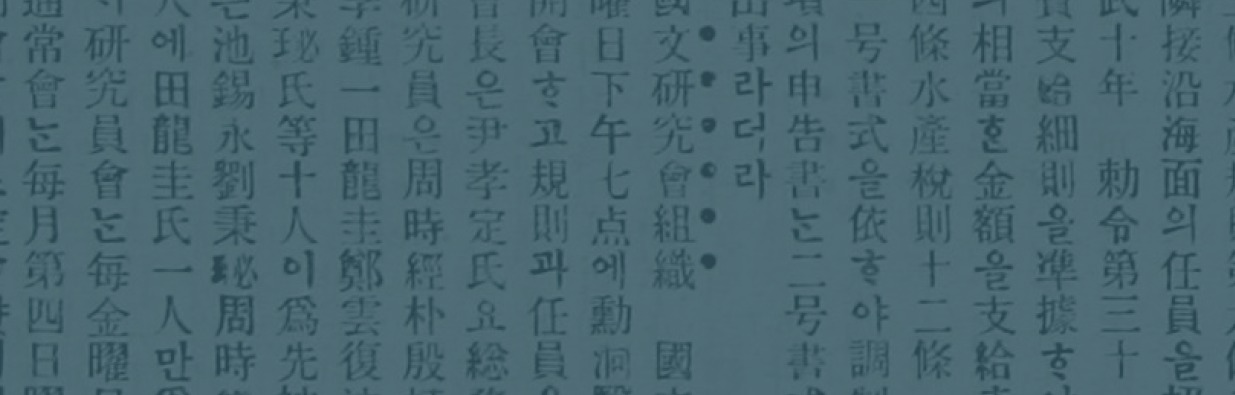 接沿海面의任員을
十年 勅令第三十
支給細則을準據ᄒᆞ
相當ᄒᆞᆫ金額을支給
條水產稅則十二條
号書式을依ᄒᆞ야調
의申告書ᄂᆞᆫ二号書
事라더라
文研究會組織 國
日下午七点에勳洞
會ᄒᆞ고規則과任員
長은尹孝定氏요総
究員은周時經朴殷
鍾一田龍圭鄭雲復
珌氏等十人이爲先
池錫永劉秉珌周時
에田龍圭氏一人만
研究員會ᄂᆞᆫ每金曜
常會ᄂᆞᆫ每月第四日